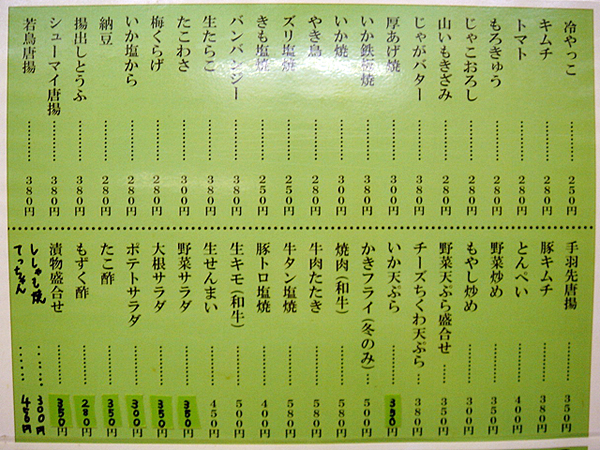 冷やっこ………250円
キムチ………280円
トマト………280円
もろきゅう………280円
じゃこおろし………280円
山いもきざみ………280円
じゃがバター………380円
厚あげ焼………300円
いか鉄板焼………380円
いか焼………300円
やき鳥………280円
ズリ塩焼………250円
きも塩焼………250円
バンバンジー………380円
生たらこ………380円
たこわさ………300円
梅くらげ………280円
いか塩から………280円
納豆………280円
揚出しとうふ………380円
シューマイ唐揚………380円
若鳥唐揚………380円
手羽先唐揚………350円
豚キムチ………380円
とんぺい………400円
野菜炒め………350円
もやし炒め………300円
野菜天ぷら盛合せ………350円
チーズちくわ天ぷら…380円
いか天ぷら………350円
かきフライ(冬のみ)…500円
焼肉(和牛)………580円
牛肉たたき………580円
牛タン塩焼………580円
豚トロ塩焼………400円
生キモ(和牛)………500円
生せんまい………450円
野菜サラダ………350円
大根サラダ………350円
ポテトサラダ………300円
たこ酢………350円
もずく酢………280円
漬物盛合せ………350円
ししゃも焼……300円
てっちゃん……450円